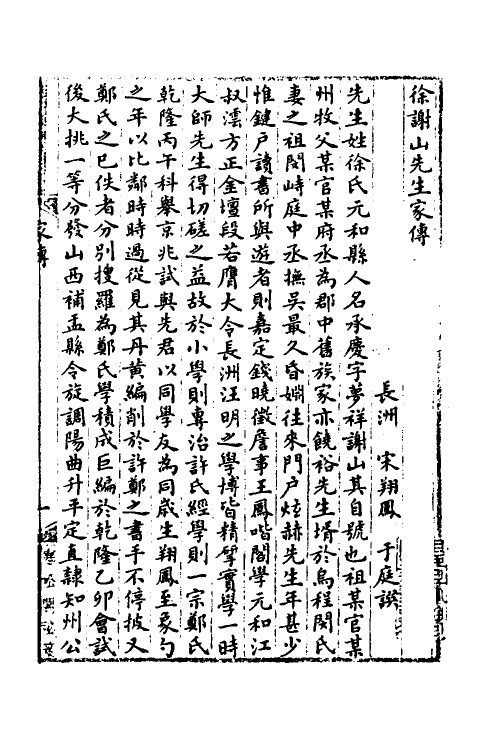 徐謝山先生家傳
長洲　宋翔鳳　于庭譔
先生姓徐氏元和縣人名承慶字夢祥謝山其自號也祖某官某
州牧父某官某府丞為郡中舊族家亦饒裕先生壻於烏程閔氏
妻之祖閔峙庭中丞撫吳最久昏婣往來門戶炫赫先生年甚少
惟鍵戶讀書所與遊者則嘉定錢曉徵詹事王鳳喈閣學元和江
叔澐方正金壇段若膺大令長洲汪明之學博皆精揅實學一時
大師先生得切磋之益故於小學則專治許氏經學則一宗鄭氏
乾隆丙午科舉京兆試與先君以同學友為同歲生翔鳳至象勺
之年以比鄰時時過從見其丹黃編削於許鄭之書手不停披又
鄭氏之已佚者分別搜羅為鄭氏學積成巨編於乾隆乙卯會試
後大挑一等分發山西補盂縣令旋調陽曲升平定直隸知州公
家傳
一